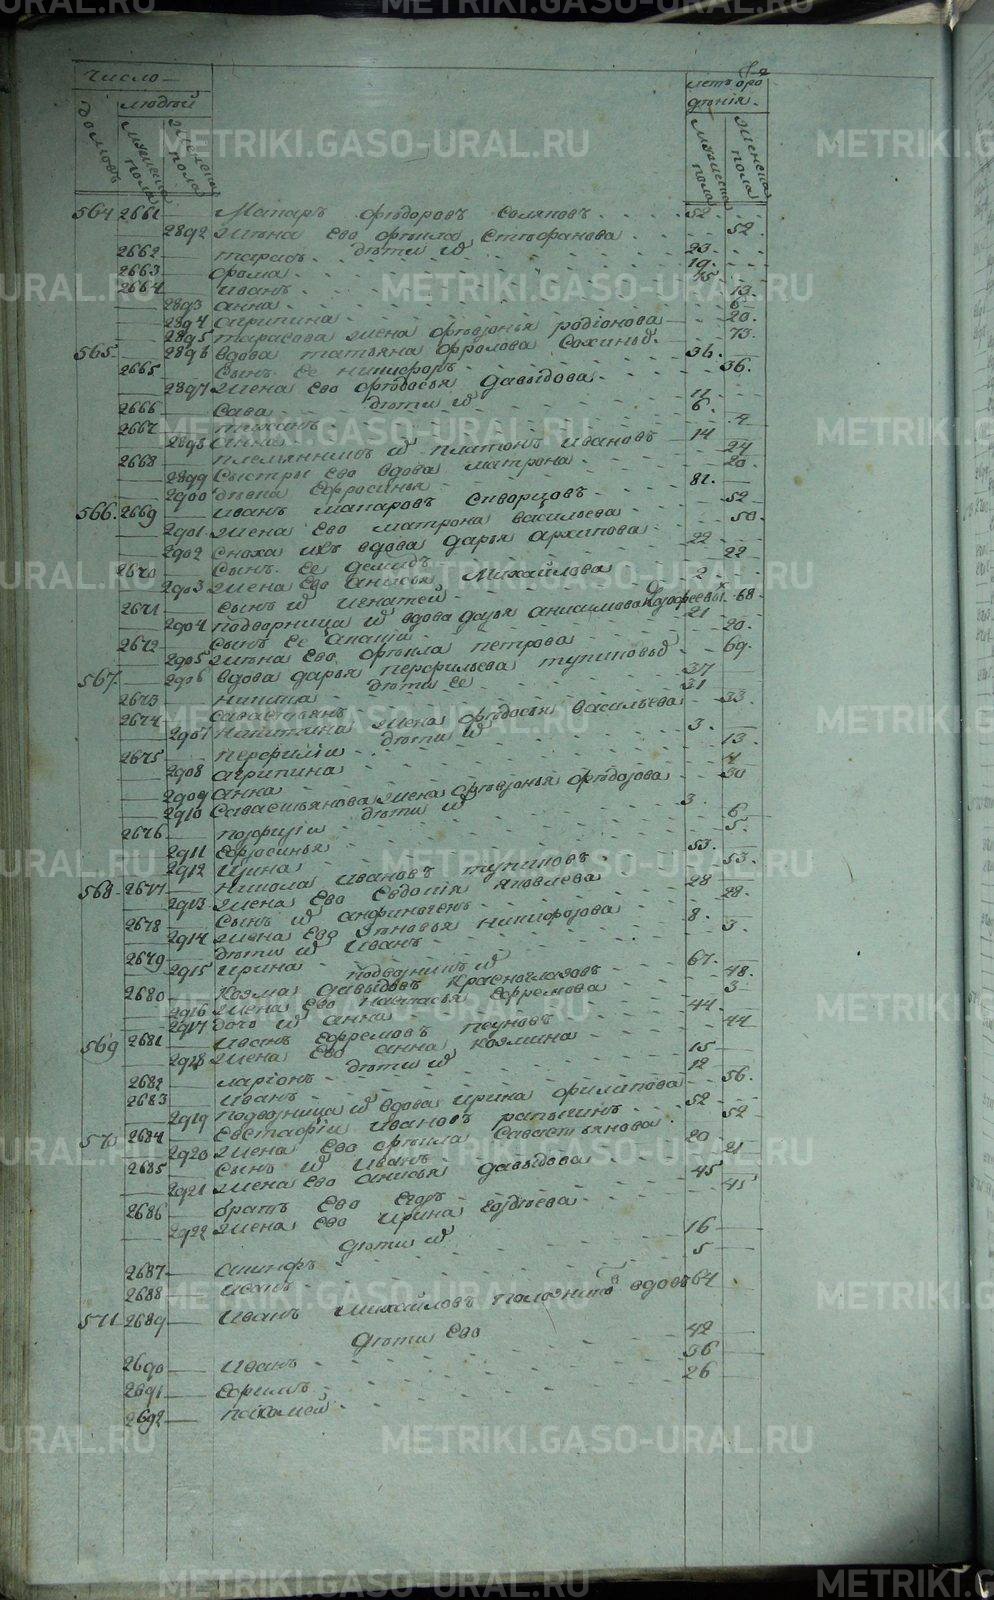 METRIKI.GASO-URAL.RU
число
людей
домовъ
мужеска пола
женска пола
летъ от ро
дѣнія.
мужеска пола
женска пола
564 2661 Макаръ Ѳедоровъ 52
2892 жена ево Ѳекла Стефанова 52
дѣти их
2662 Тарасъ 23
2663 Ѳома 19
2664 Иванъ 15
2893 Анна 13
2894 Агрипина 6
2895 Тарасова жена Ѳевронья Родіонова 20
565 2896 вдова Татьяна Фролова 73
2665 Сынъ ее Никифоръ 36
2897 жена ево Ѳедосья Давыдова 36
дѣти их
2666 Сава 11
2667 Тихонъ 6
2898 Анна 4
2668 племянникъ их Платонъ Ивановъ 14
2899 Сестры ево вдова Матрона 24
2900 девка Ефросинья 20
566 2669 Иванъ Макаровъ Скворцовъ 81
2901 жена ево Матрона Васильева 52
2902 Сноха ихъ вдова Дарья Архипова 50
2670 Сынъ ее Демидъ 22
2903 жена ево Анисья Михайлова 22
2671 Сынъ их Игнатей 2
2904 подворница их вдова Дарья Анисимова 68
2672 Сынъ ее Ананіи 21
2905 жена ево Ѳекла Петрова 20
567 2906 вдова Дарья Перфильева Тупиковы 69
дѣти ее
2673 Никита 37
2674 Савастьянъ 31
2907 Никитина жена Ѳедосья Васильева 33
дѣти их
2675 Перфилій 3
2908 Агрипина 13
2909 Анна 4
2910 Савастьянова жена Ѳевронья Ѳедорова 30
дѣти их
2676 Порфирій 3
2911 Ефросинья 6
2912 Ирина 5
568 2677 Никола Ивановъ Тупиковъ 53
2913 жена ево Евдокія Яковлева 53
2678 Сынъ их Анфиногенъ 28
2914 жена ево Зѣновья Никифорова 28
2679 дѣти их Иванъ 8
2915 Ирина 3
подворникъ их
2680 Козма Давыдовъ Красноглазовъ 67
2916 жена ево Настасья Ефремова 48
2917 дочь их Анна 3
569 2681 Иванъ Ефремовъ 44
2918 жена ево Анна Козмина 44
дѣти их
2682 Ларіонъ 15
2683 Иванъ 12
2919 подворница их вдова Ирина Филипова 56
570 2684 Евстафіи Ивановъ 52
2920 жена ево Ѳекла Савастьянова 52
2685 Сынъ их Иванъ 20
2921 жена ево Анисья Давыдова 21
2686 братъ ево Егоръ 45
2922 жена ево Ирина 45
дѣти их
2687 Акинфъ 16
2688 Исакъ 5
571 2689 Иванъ Михайловъ вдовъ 64
дѣти ево
2690 Иванъ 42
2691 Ефимъ 36
2692 26